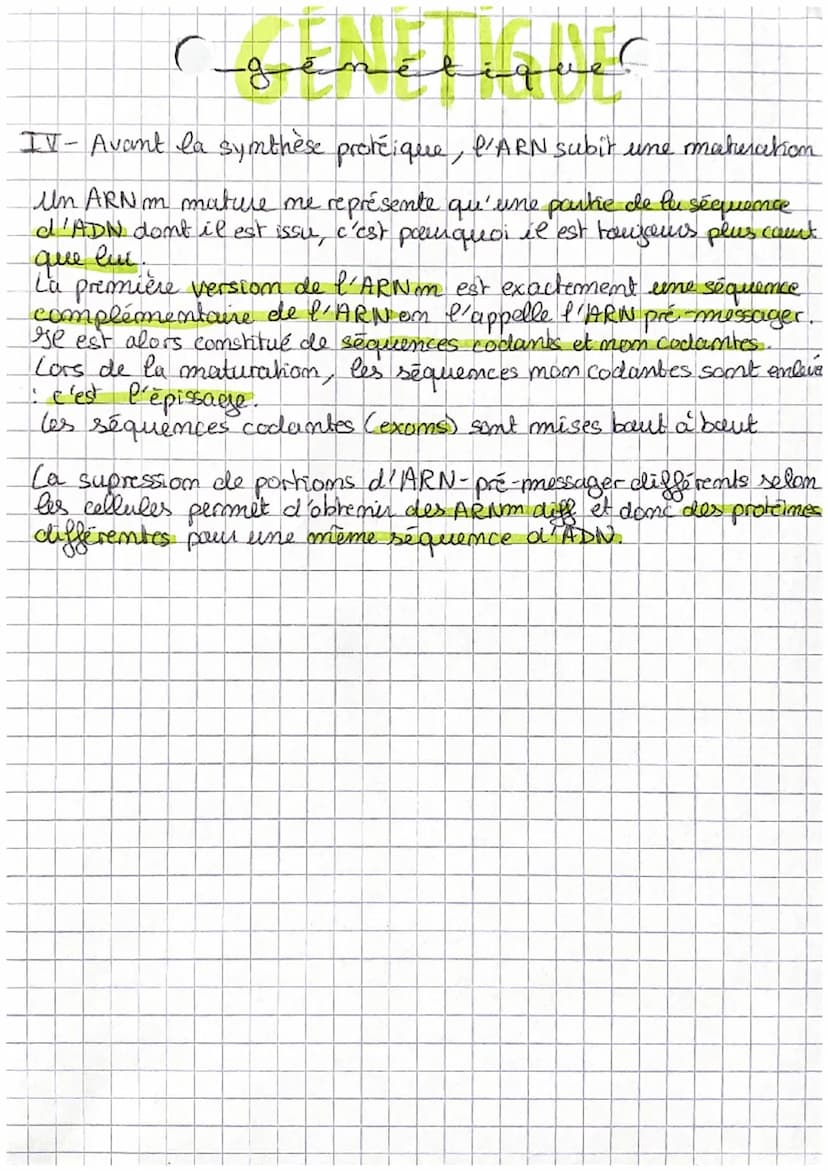 GÉNÉTIQUE
génétique
IV- Avant la synthèse protéique, l'ARN subit une maturation
Un ARNm mature ne représente qu'une partie de la séquence
d'ADN dont il est issu, c'est pourquoi il est toujours plus court
que lui.
La première version de l'ARNm est exactement une séquence
complémentaire de l'ARN on l'appelle l'ARN pré-messager.
Il est alors constitué de séquences codants et non codantes.
Lors de la maturation, les séquences non codantes sont enlevé
: c'est l'épissage.
Les séquences codantes (exons) sont mises bout à bout
La supression de portions d'ARN-pré-messager différents selon
les cellules permet d'obtenir des ARNm diff et donc des protéines
différentes pour une même séquence d'ADN.